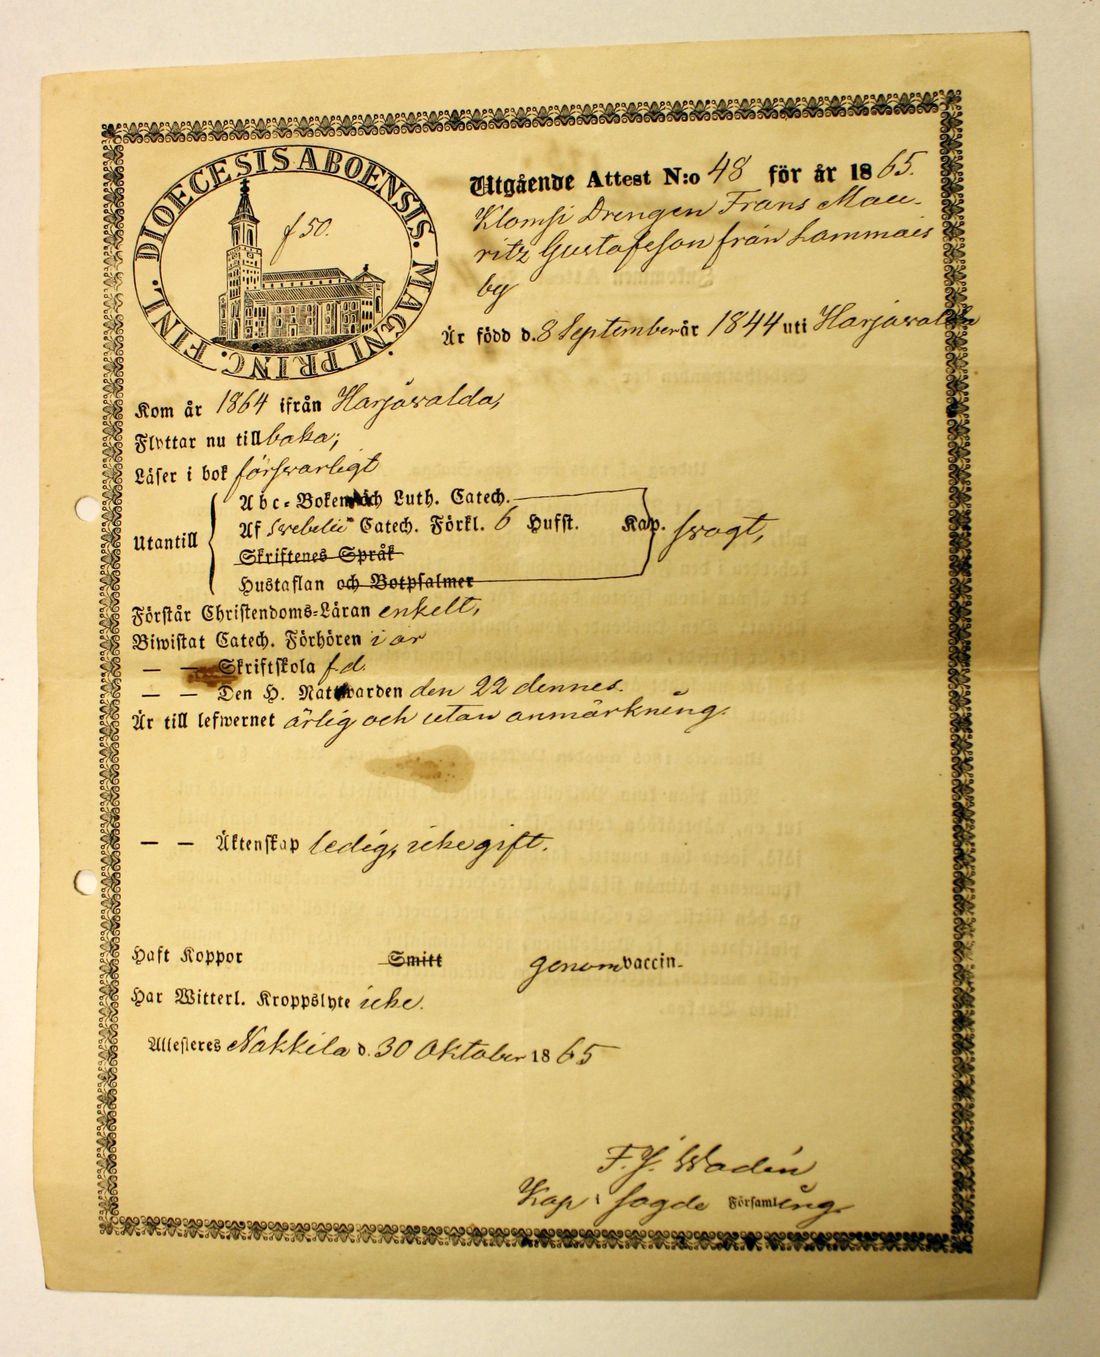 DIOECESIS ABOENSIS. MAGNI PRINC. FINL.
f 50.
Utgående Attest N:o 48 för år 1865.
Klomsi Drengen Frans Mau-
ritz Gustafsson från Lammais
by
Är född d. 8 September år 1844 uti Harjawalda
Kom år 1864 ifrån Harjawalda,
Flyttar nu tillbaka;
Läser i bok försvarligt
Utantill
Abc-Boken och Luth. Catech.
Af Swebelii Catech. Förkl. 6 Hufst. Kap. swagt,
Skriftenes Språk
Hustaflan och Botpsalmer
Förstår Christendoms-Läran enkelt,
Biwistat Catech. Förhören i år
— — Skriftskola f.d.
— — Den H. Nattwarden den 22 dennes.
Är till lefwernet ärlig och utan anmärkning.
— — Äktenskap ledig, icke gift.
Haft Koppor Smitt genom vaccin.
Har Witterl. Kroppslyte icke.
Attesteras Nakkila d. 30 Oktober 1865
F. J. Wadén
Kap i sagde Församling